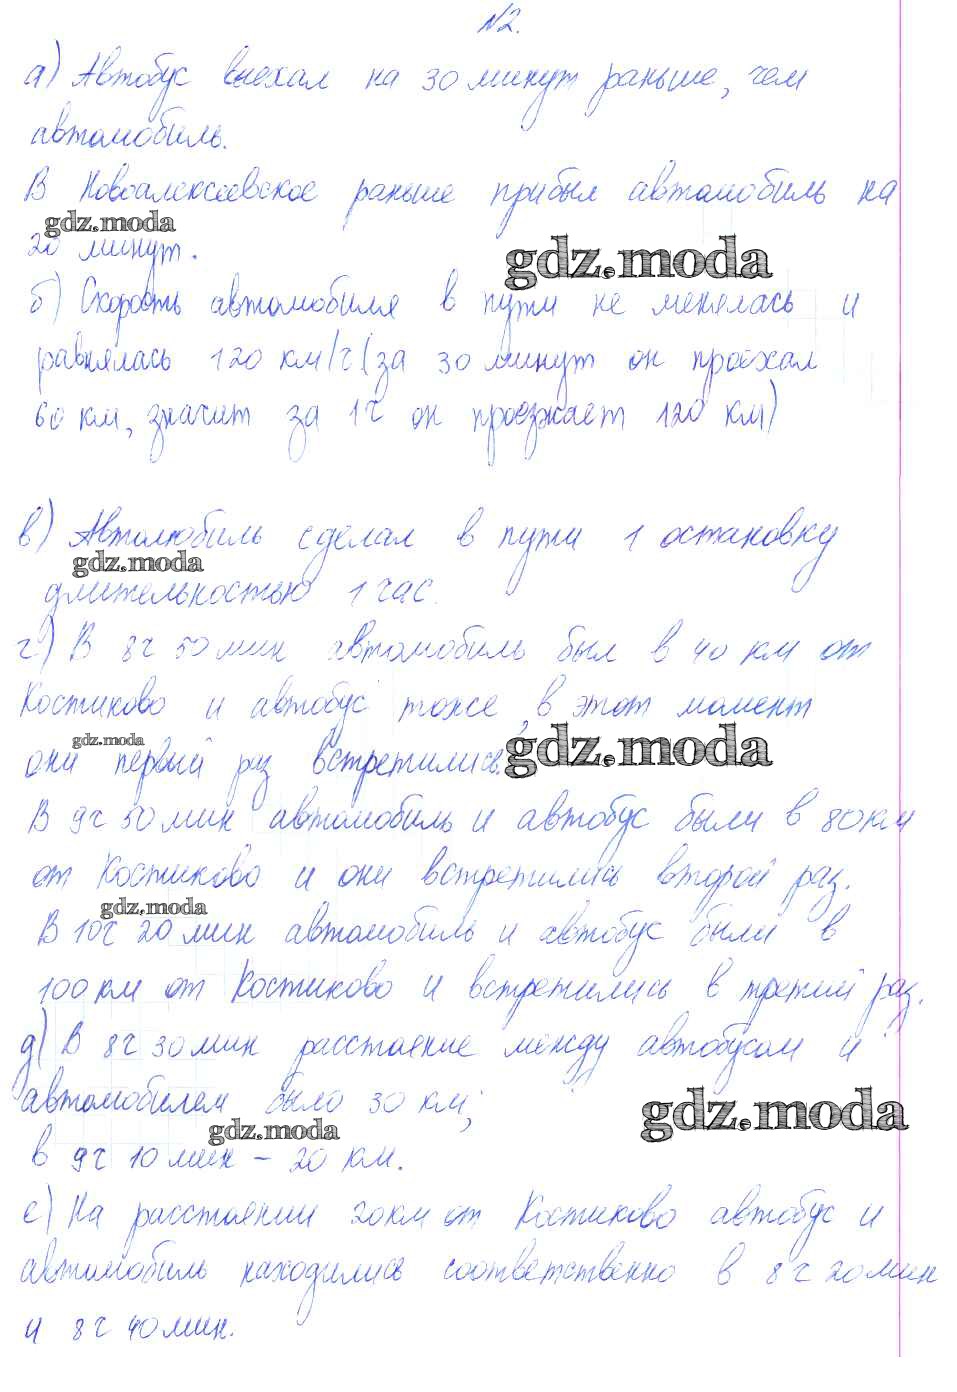 №2.
а) Автобус выехал на 30 минут раньше, чем
автомобиль.
В Новоалексеевское раньше прибыл автомобиль на
gdz.moda
20 минут.
gdz.moda
б) Скорость автомобиля в пути не менялась и
равнялась 120 км/ч (за 30 минут он проехал
60 км, значит за 1ч он проезжает 120 км)
в) Автомобиль сделал в пути 1 остановку
gdz.moda
длительностью 1 час.
г) В 8ч 50 мин автомобиль был в 40 км от
Костиково и автобус тоже, в этот момент
gdz.moda
они первый раз встретились.
gdz.moda
В 9ч 50 мин автомобиль и автобус были в 80 км
от Костиково и они встретились второй раз.
gdz.moda
В 10ч 20 мин автомобиль и автобус были в
100 км от Костиково и встретились в третий раз.
д) В 8ч 30 мин расстояние между автобусом и
автомобилем было 30 км;
gdz.moda
gdz.moda
в 9ч 10 мин – 20 км.
е) На расстоянии 20 км от Костиково автобус и
автомобиль находились соответственно в 8ч 20 мин
и 8ч 40 мин.